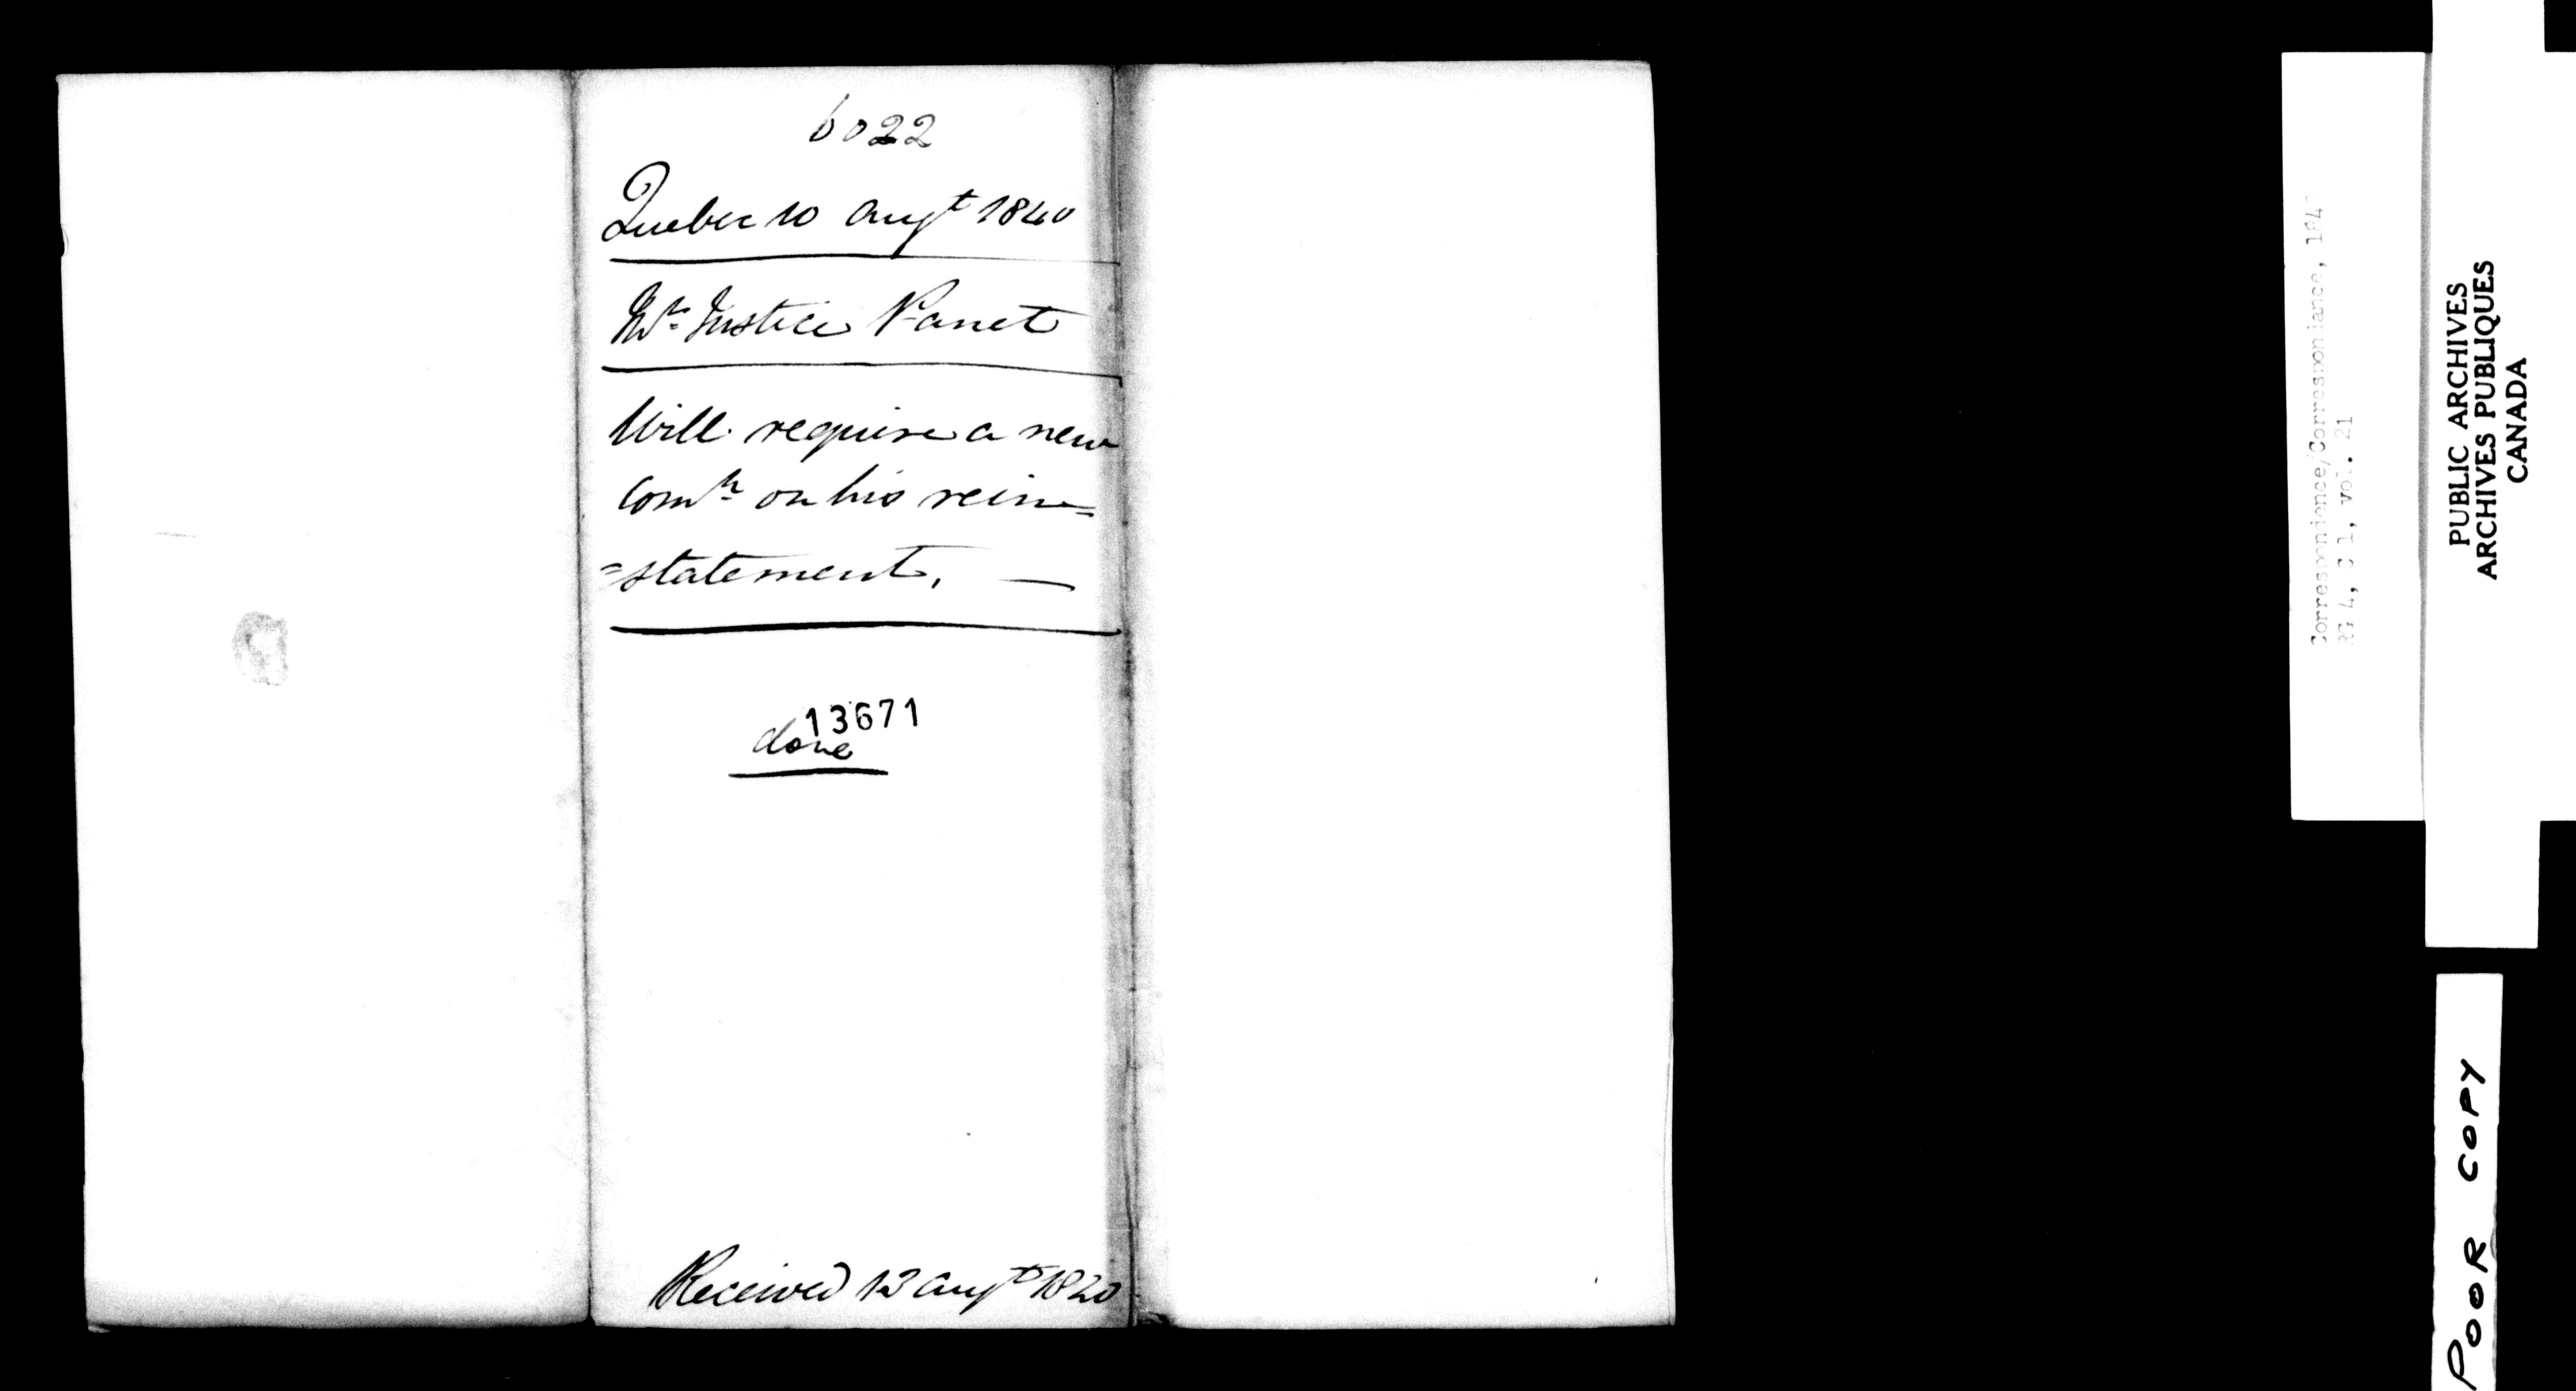 6022
Quebec 10 Augt 1840
Mr. Justice Panet
Will require a new
Comn on his rein=
=statement. —
13671
done
Received 13 Augt 1840
Correspondence/Correspondance, 184
RG 4, C 1, vol. 21
PUBLIC ARCHIVES
ARCHIVES PUBLIQUES
CANADA
POOR COPY